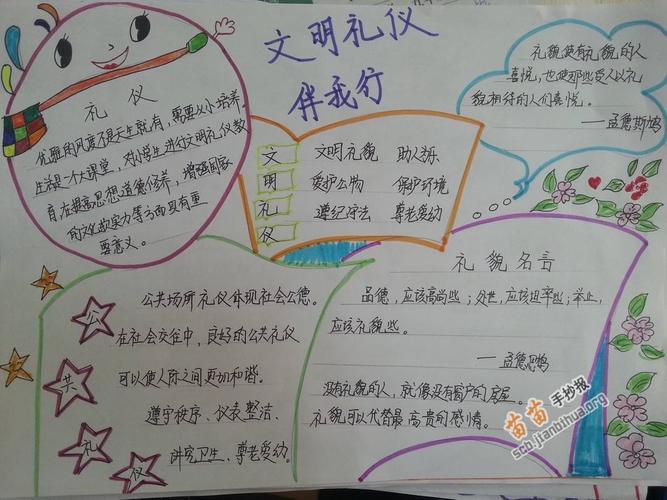 文明礼仪
伴我行
礼仪
优雅的风度不是天生就有,需要从小培养。
生活是一个大课堂,对小学生进行文明礼仪教
育在提高思想道德修养,增强国家
的文化软实力等方面具有重
要意义。
文 文明礼貌 助人为乐
明 爱护公物 保护环境
礼 遵纪守法 尊老爱幼
仪
礼貌使有礼貌的人
喜悦,也使那些受人以礼
貌相待的人们喜悦。
——孟德斯鸠
公共礼仪
公共场所礼仪体现社会公德。
在社会交往中,良好的公共礼仪
可以使人际之间更加和谐。
遵守秩序、仪表整洁、
讲究卫生、尊老爱幼。
礼貌名言
品德,应该高尚些;处世,应该坦率些;举止,
应该礼貌些。
——孟德思鸠
没有礼貌的人,就像没有窗户的房屋。
礼貌可以代替最高贵的感情。
苗苗手抄报
scb.jianbihua.org